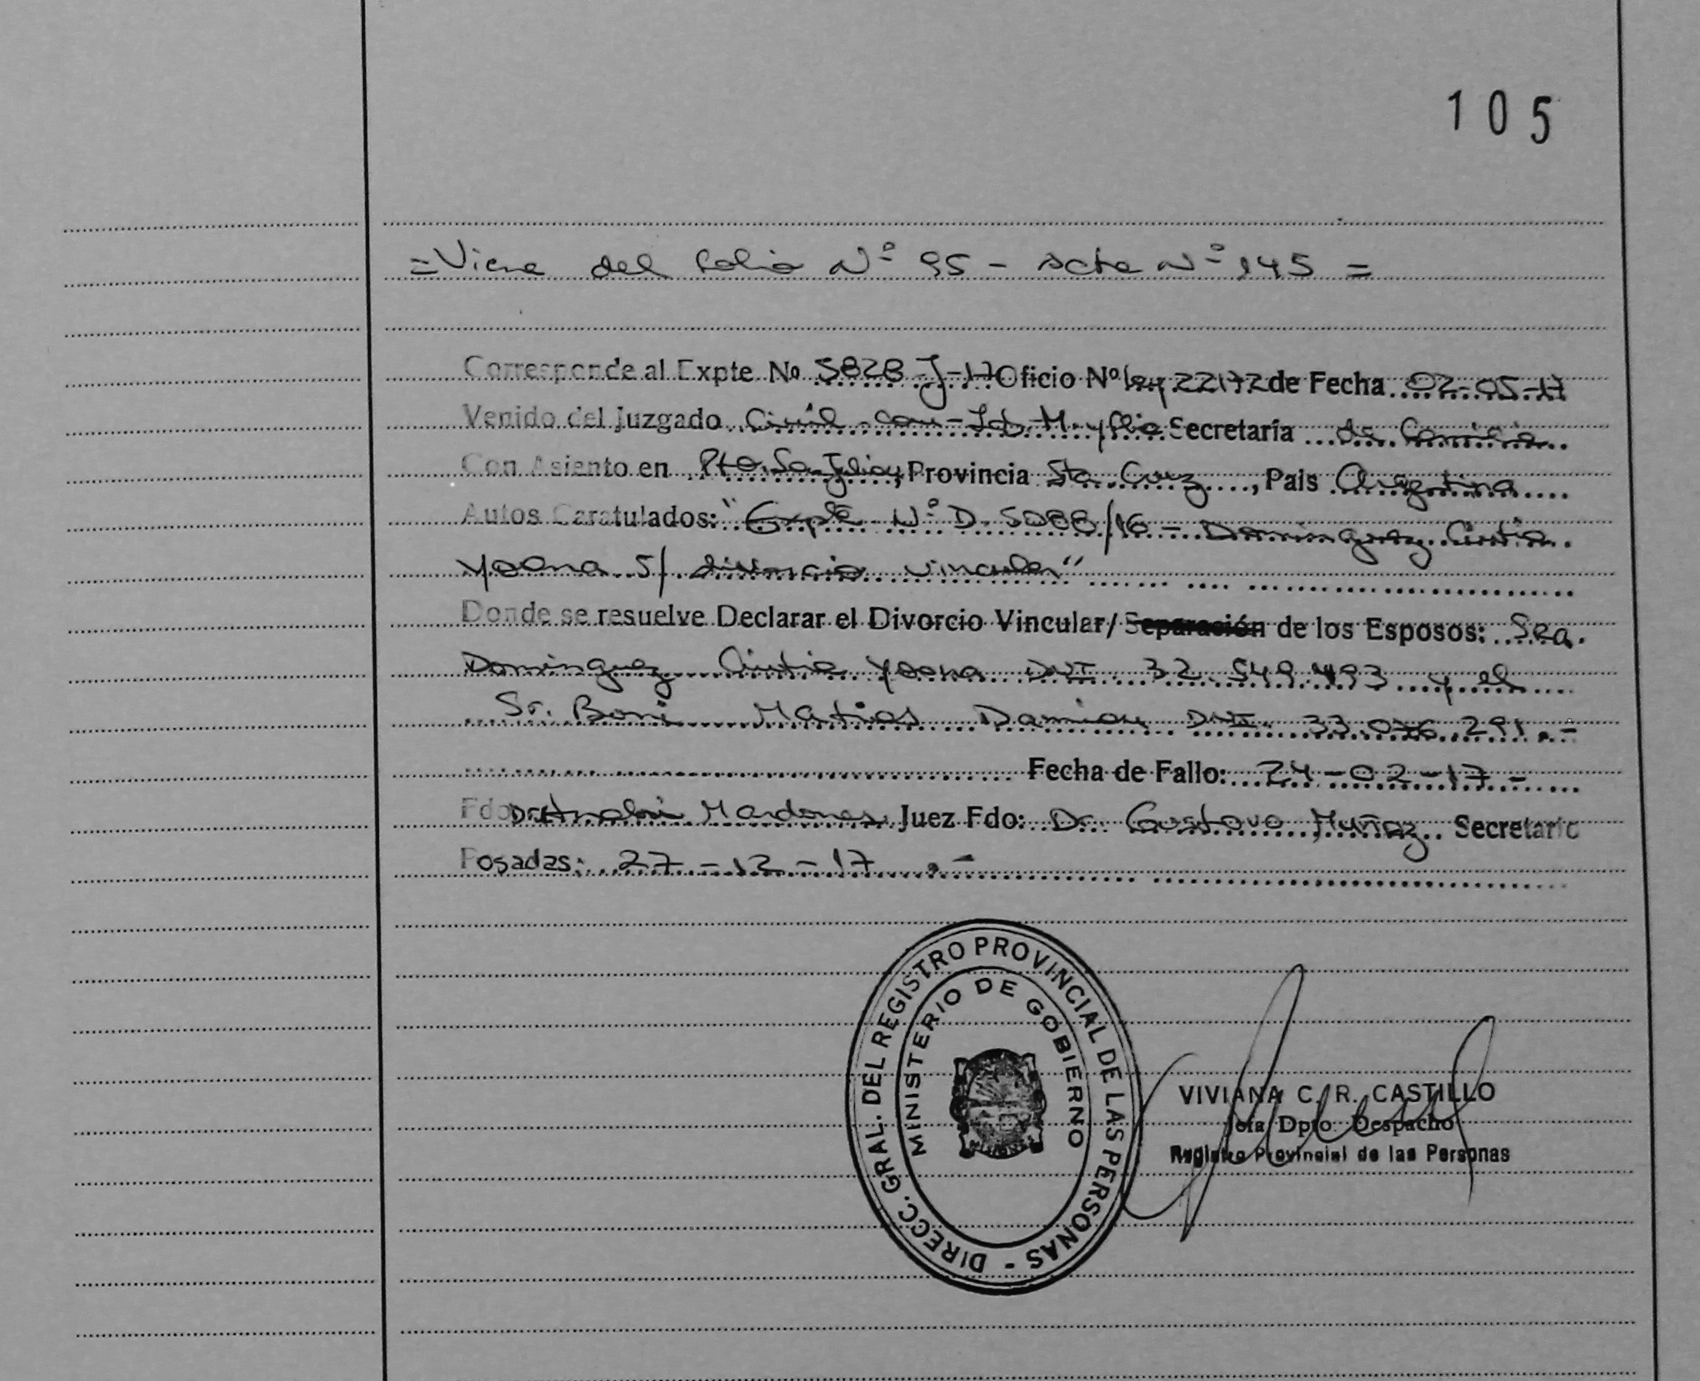 105
=Viene del folio N° 95 - Acta N° 145 =
Corresponde al Expte No 5828-J-17 Oficio N° Ley 22172 de Fecha 02-05-17
Venido del Juzgado Civil Com-Lab. M. y flia Secretaría de Familia
Con Asiento en Pto. San Julian, Provincia Sta Cruz, Pais Argentina
Autos Caratulados: "Expte N° D. 5088/16 - Dominguez Cintia
Yoana S/ divorcio vincular"
Donde se resuelve Declarar el Divorcio Vincular/Separación de los Esposos: Sra.
Dominguez Cintia Yoana DNI 32.549.493 y el
Sr. Boni Matias Damian DNI. 33.076.291.-
Fecha de Fallo: 24-02-17-
Fdo Dr. Mardones Juez Fdo: Dr. Gustavo Muñoz Secretario
Posadas: 27-12-17.-
DIRECC. GRAL. DEL REGISTRO PROVINCIAL DE LAS PERSONAS -
MINISTERIO DE GOBIERNO
VIVIANA C. R. CASTILLO
Jefa Dpto. Despacho
Registro Provincial de las Personas